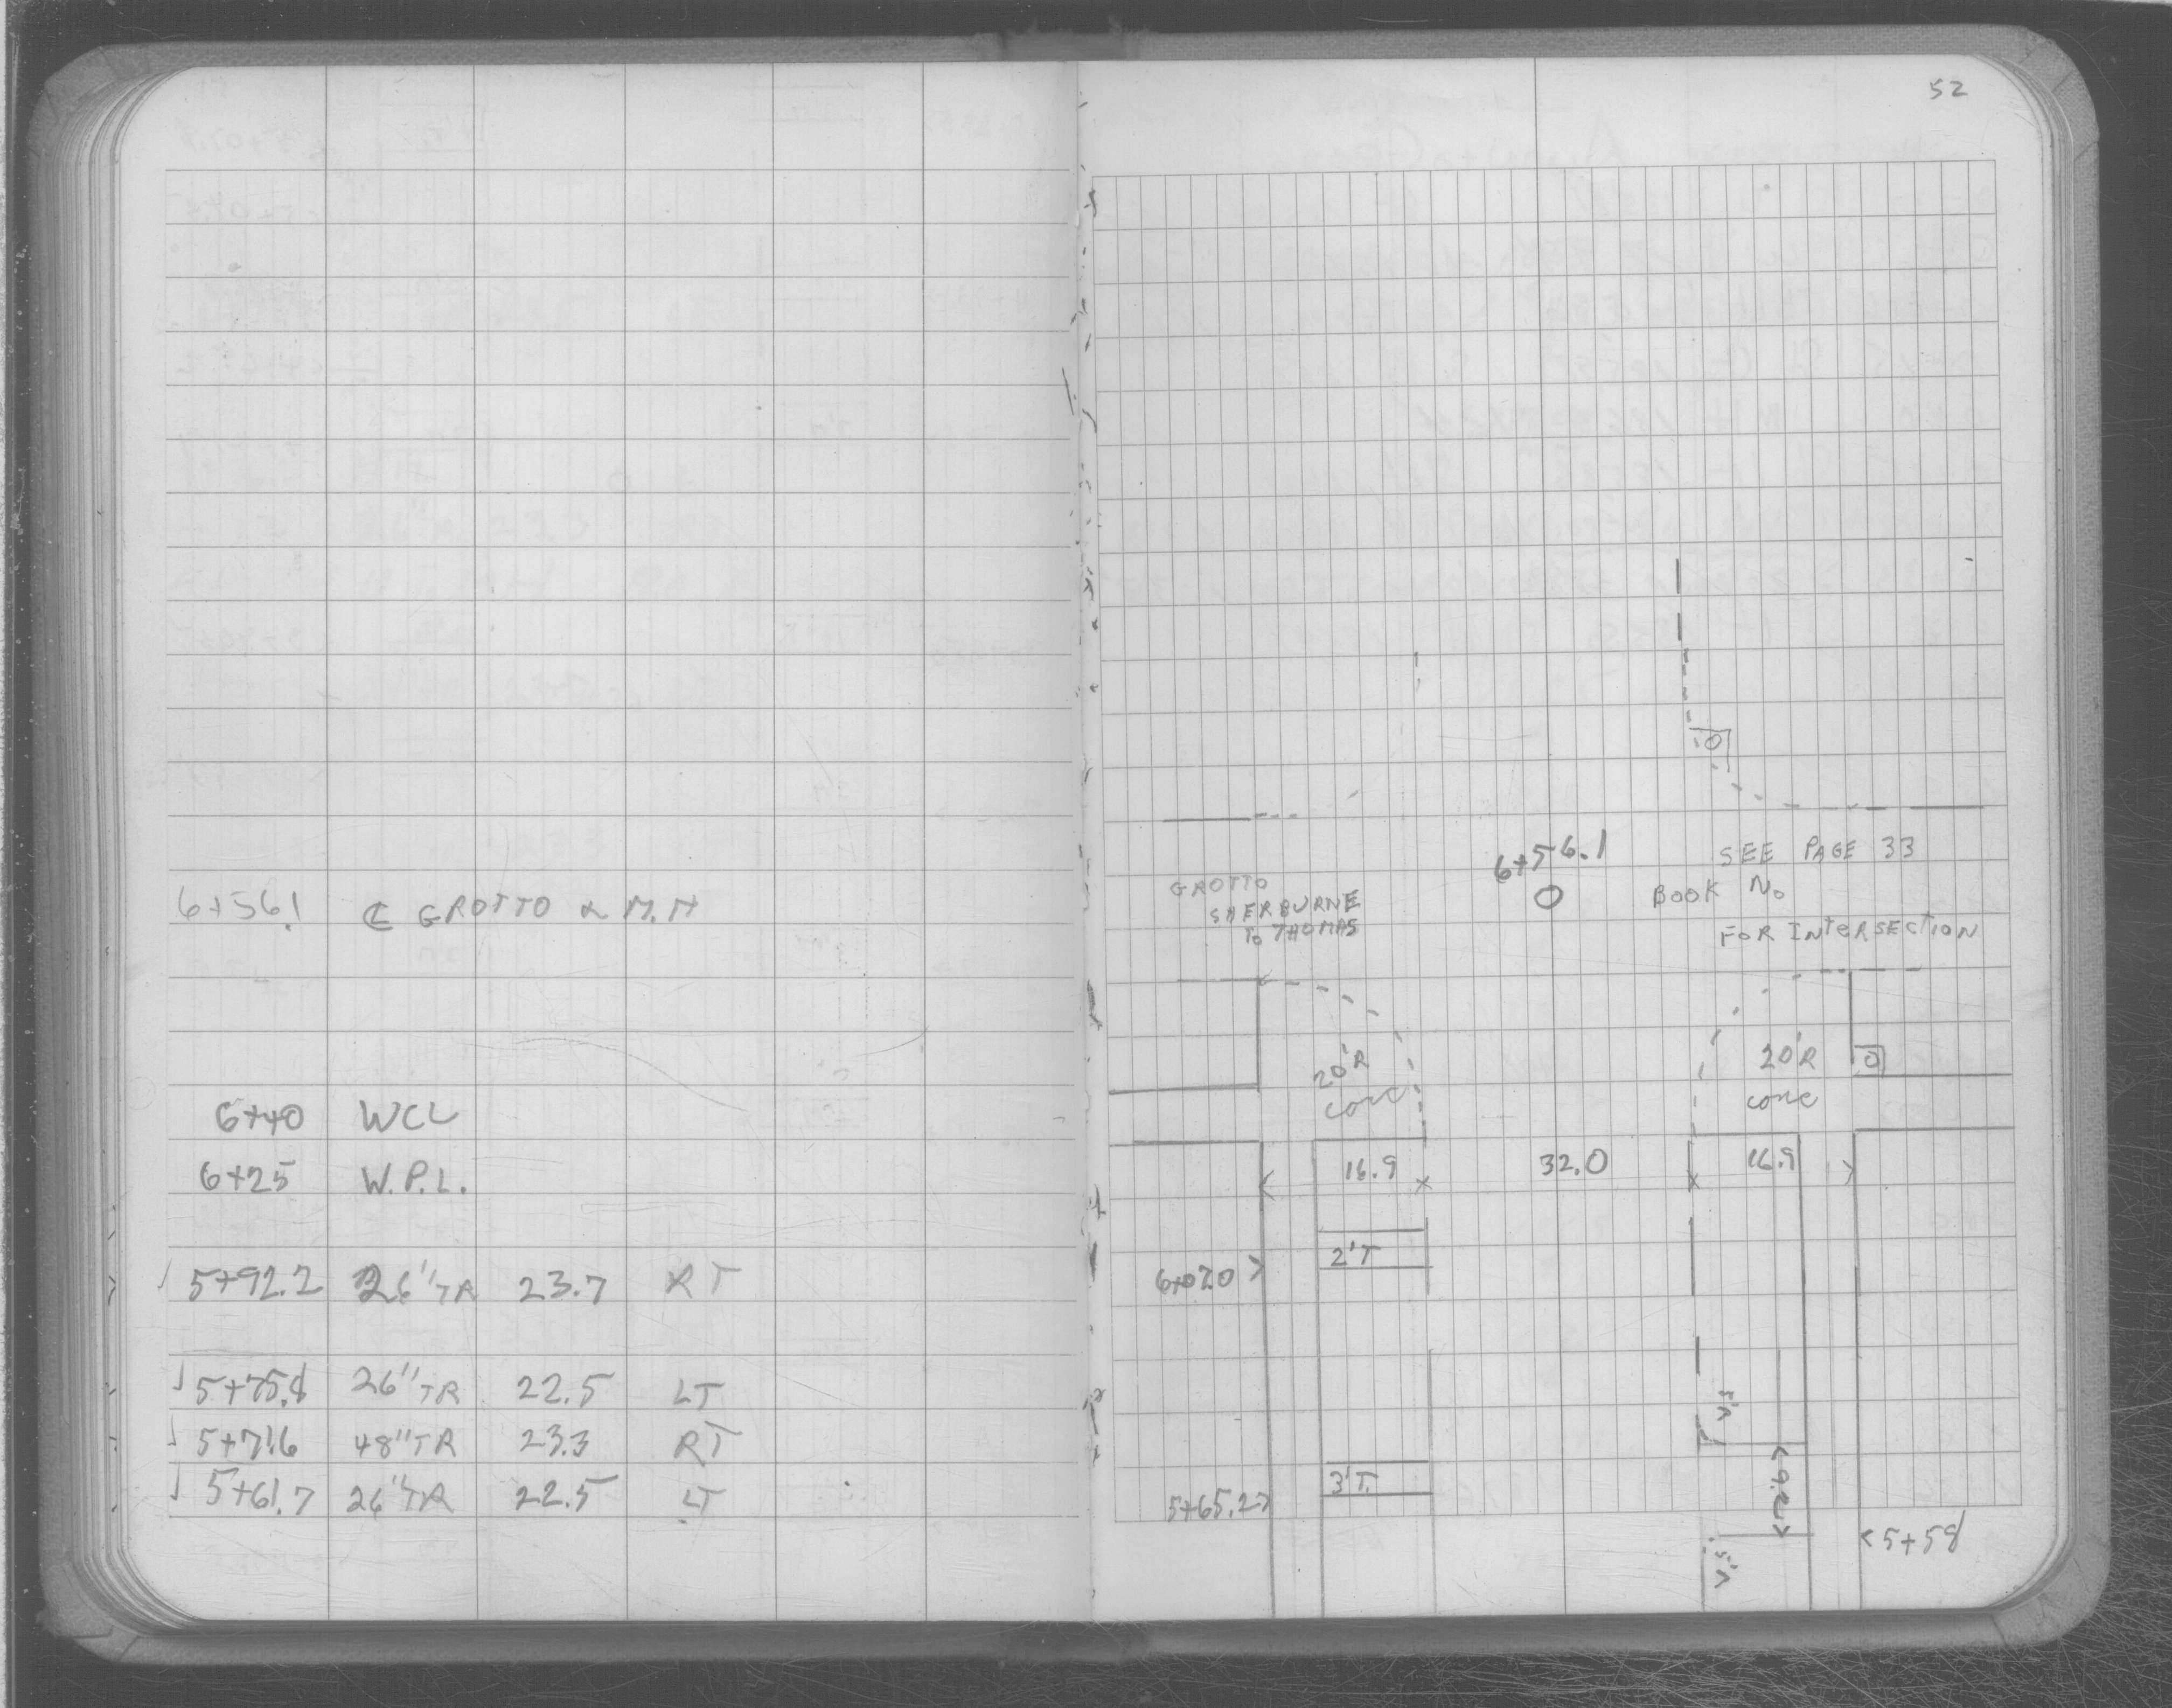 52
6+56.1 ℄ GROTTO & M.H
6+40 WCL
6+25 W.P.L.
5+92.2 26" TR 23.7 RT
5+75.8 26" TR 22.5 LT
5+71.6 48" TR 23.3 RT
5+61.7 26" TR 22.5 LT
6+56.1
SEE PAGE 33
BOOK No
FOR INtERSECtION
GROTTO
SHERBURNE
To THOMAS
20'R
conc
20'R
conc
16.9
32.0
16.9
2'T
6+07.0 >
3'T.
5+65.2>
<5+58